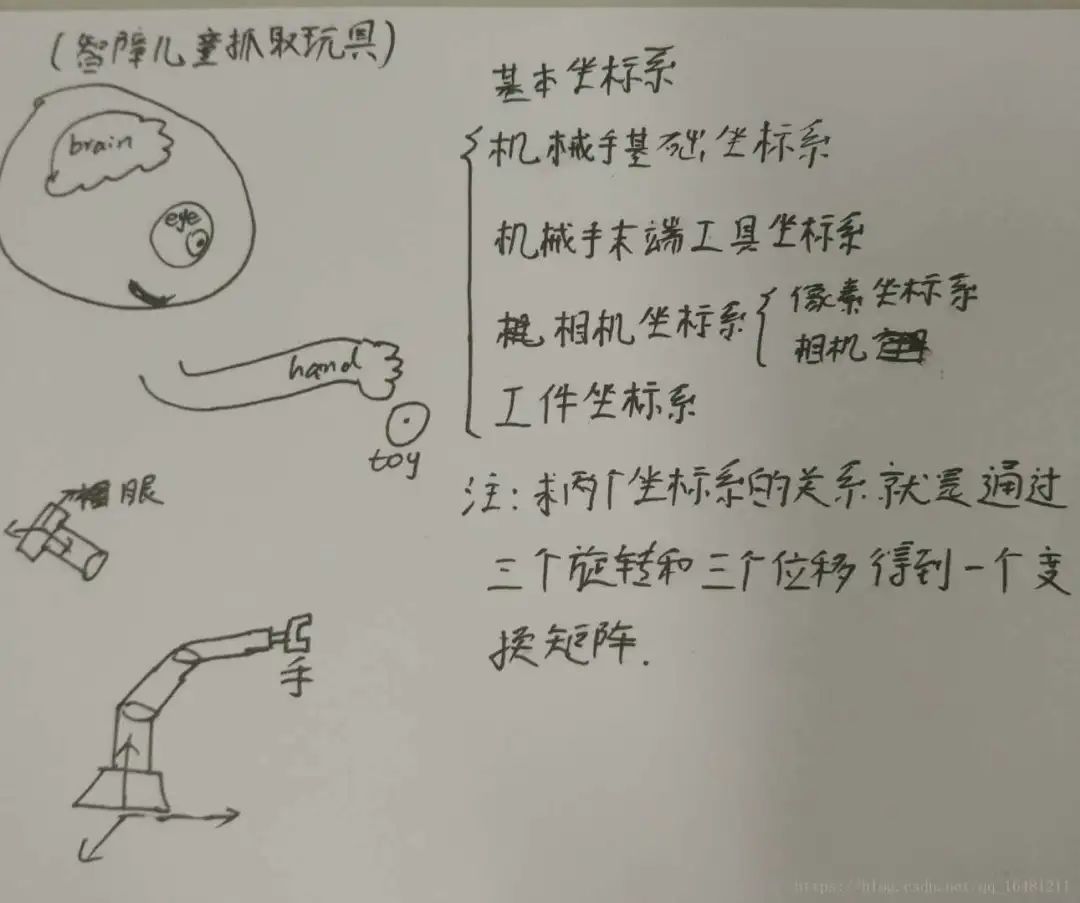 (智障儿童抓取玩具)
brain
eye
hand
toy
眼
手
基本坐标系
机械手基础坐标系
机械手末端工具坐标系
相机坐标系
像素坐标系
相机
工件坐标系
注:求两个坐标系的关系就是通过
三个旋转和三个位移得到一个变
换矩阵.
https://blog.csdn.net/qq_16481211